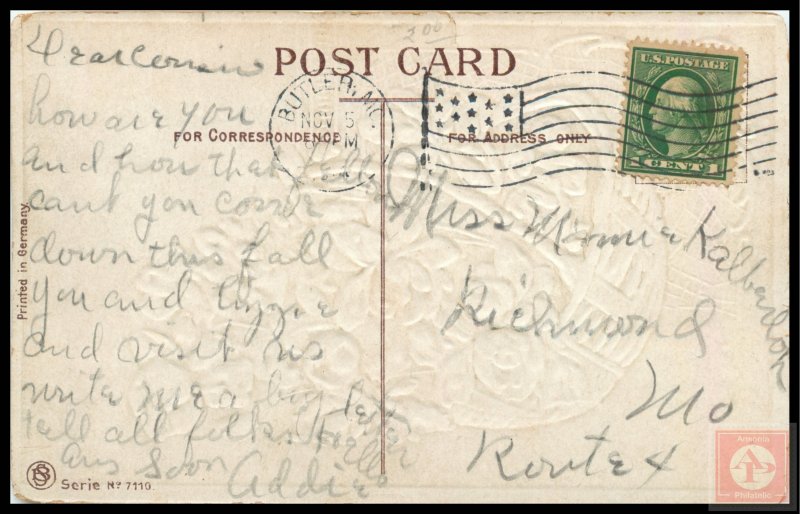 2.00
POST CARD
Dear Cousin
how are you
and how that
cant you come
down this fall
you and Lizzie
and visit us
write me a big letter
tell all folks hello
ans soon
Addie
FOR CORRESPONDENCE
FOR ADDRESS ONLY
BUTLER, MO.
NOV 5
PM
U.S. POSTAGE
1 CENT 1
Miss Minnie Kalbenloh
Richmond
Mo
Route 4
Printed in Germany
Serie No 7110.
Ansonia
AP
Philatelic